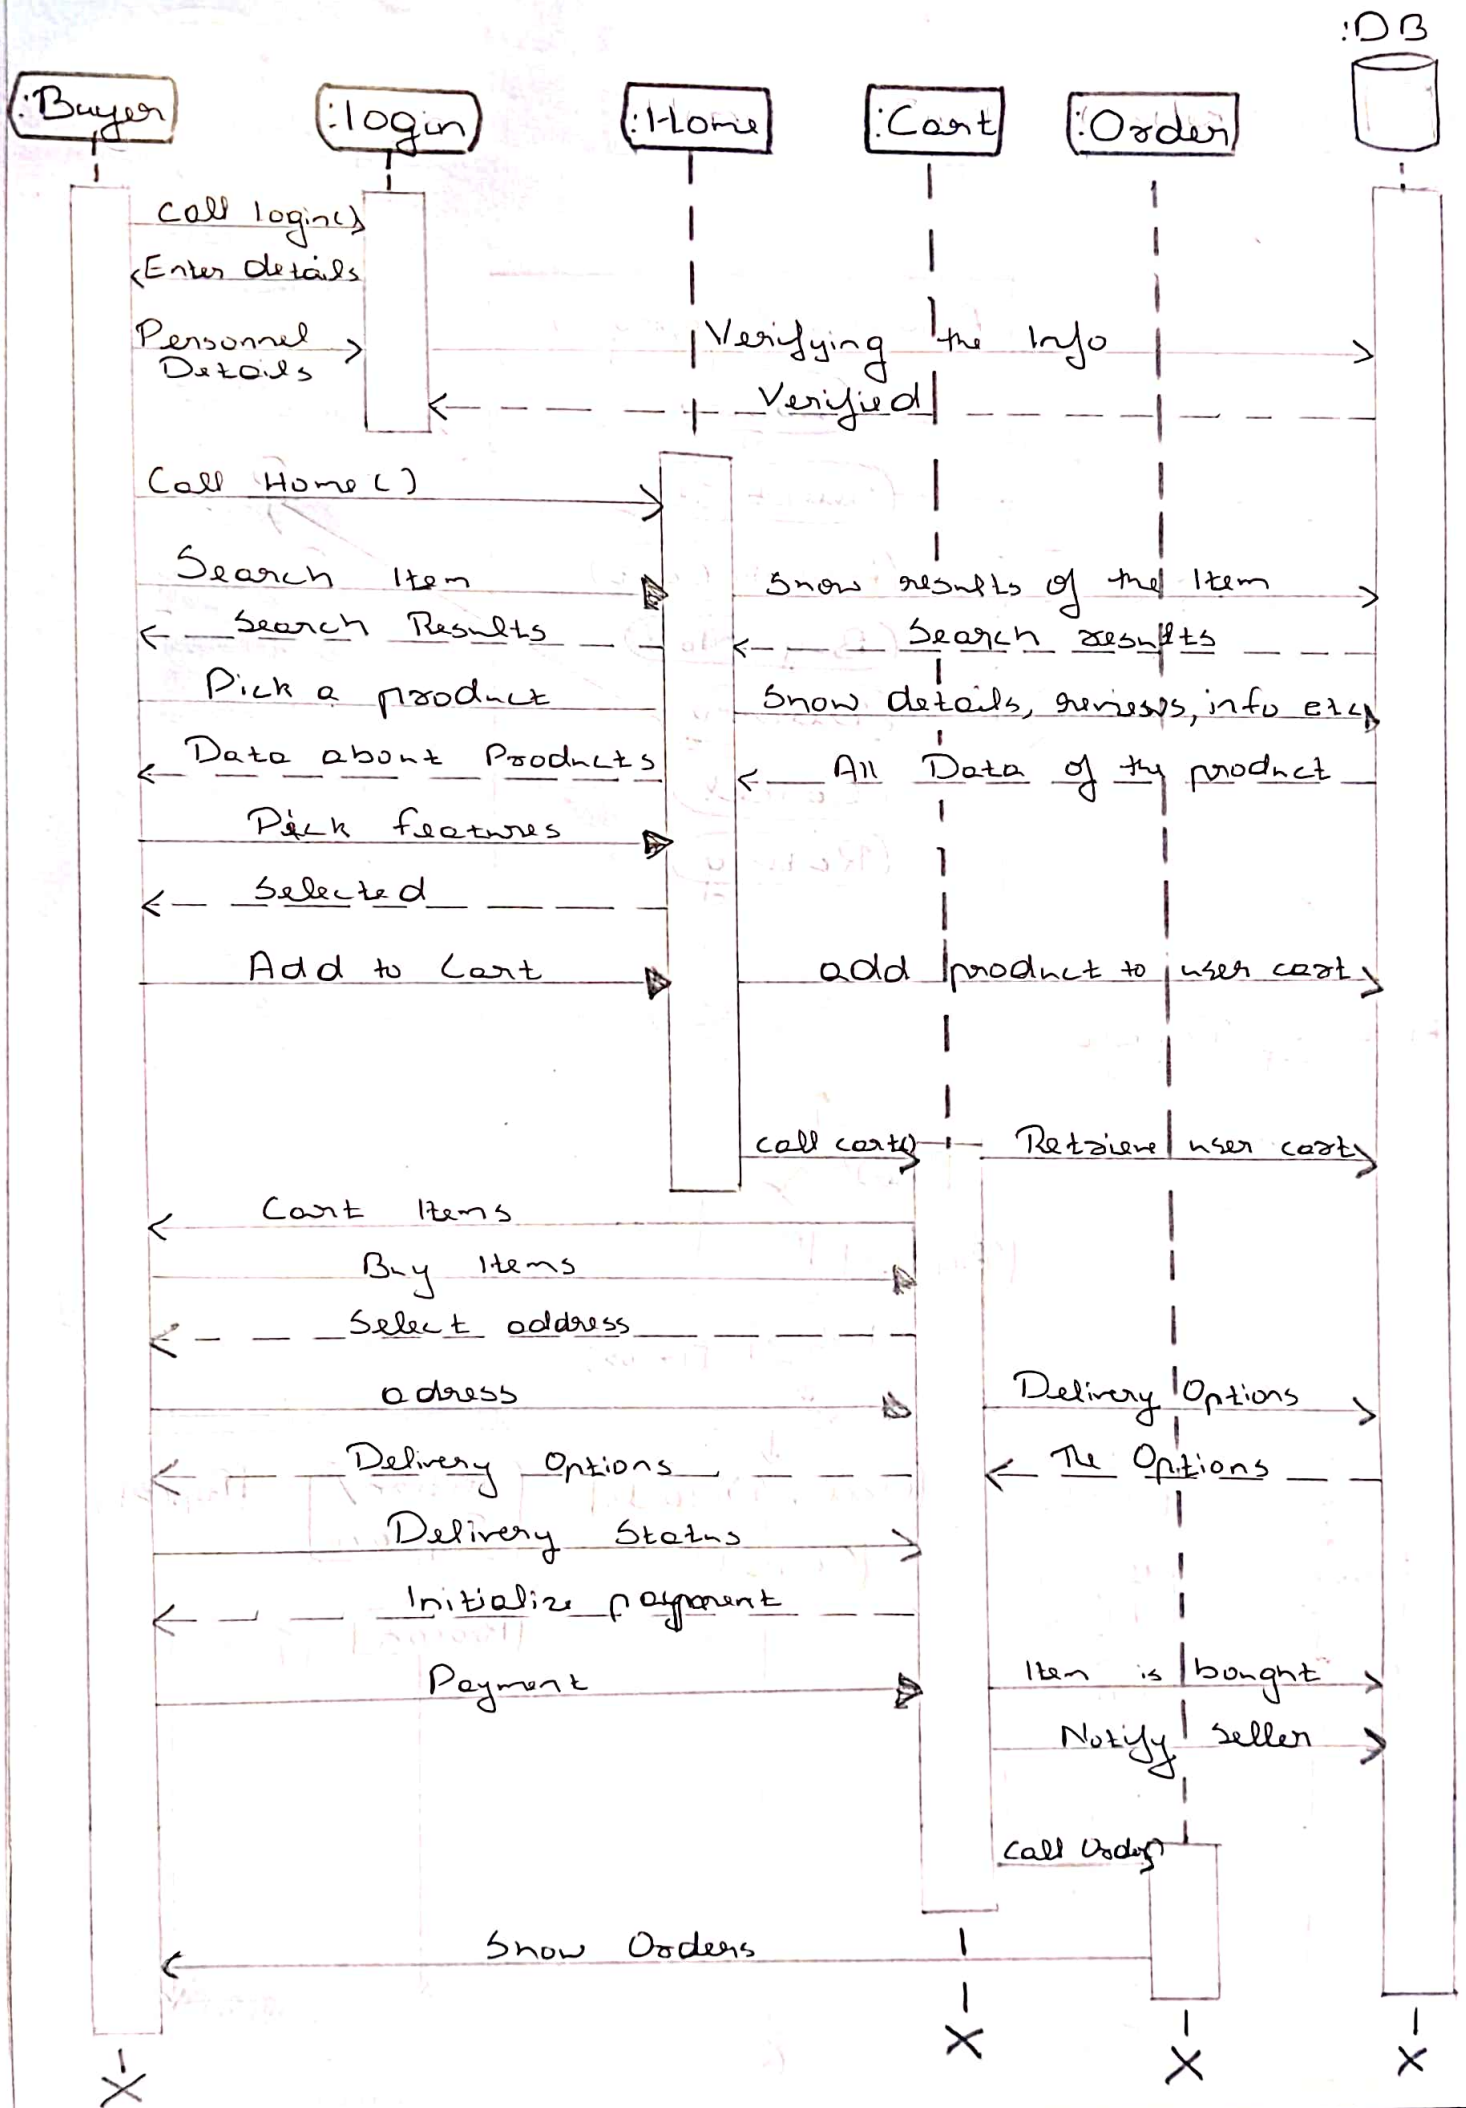 :DB
:Buyer
:login
:Home
:Cart
:Order
call login()
Enter details
Personnel
Details
Verifying the Info
Verified
Call Home()
Search Item
Show results of the Item
Search Results
Search results
Pick a product
Show details, reviews, info etc
Data about Products
All Data of the product
Pick features
Selected
Add to Cart
add product to user cart
call cart()
Retrieve user cart
Cart Items
Buy Items
Select address
adress
Delivery Options
Delivery Options
The Options
Delivery Status
Initialize payment
Payment
Item is bought
Notify Seller
Call Order()
Show Orders
X
X
X
X